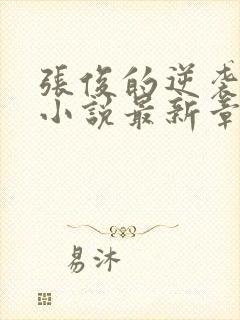 張俊的逆袭
小説最新章
易沐